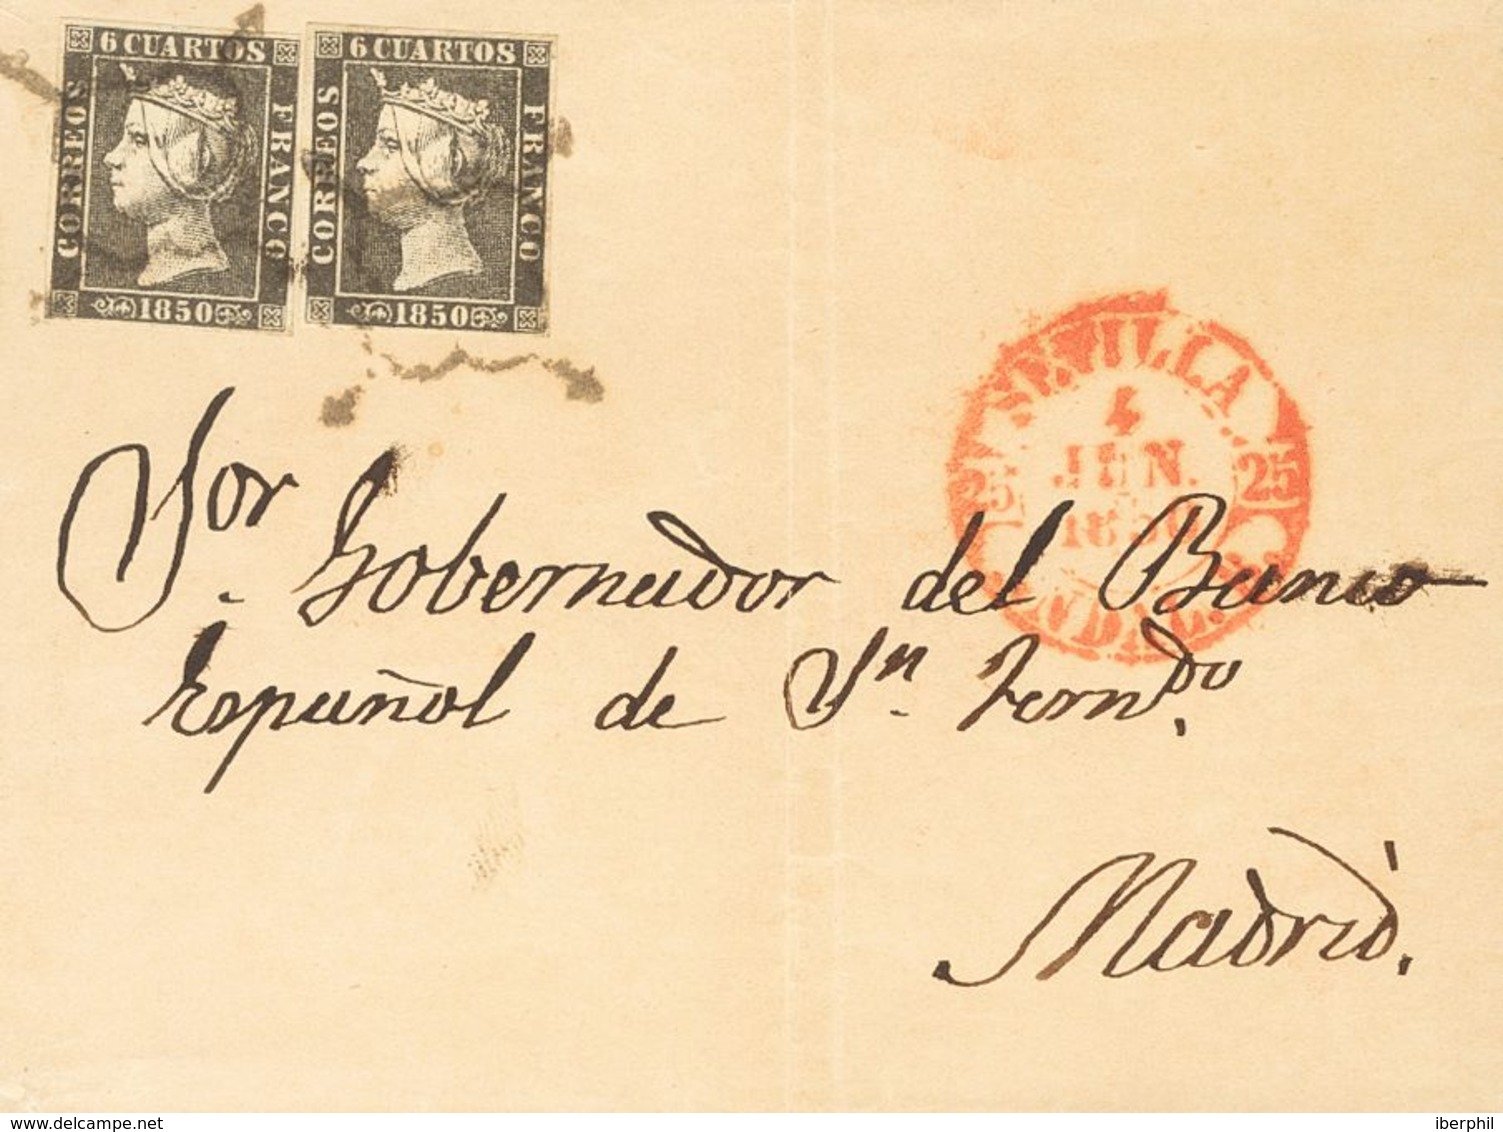 6 CUARTOS
CORREOS
FRANCO
1850
6 CUARTOS
CORREOS
FRANCO
1850
SEVILLA
4
JUN.
1850
25 25
ANDAL.
Sor
S. Gobernador del Banco
Español de Sn. Fern.do
Madrid.
www.delcampe.net
iberphil